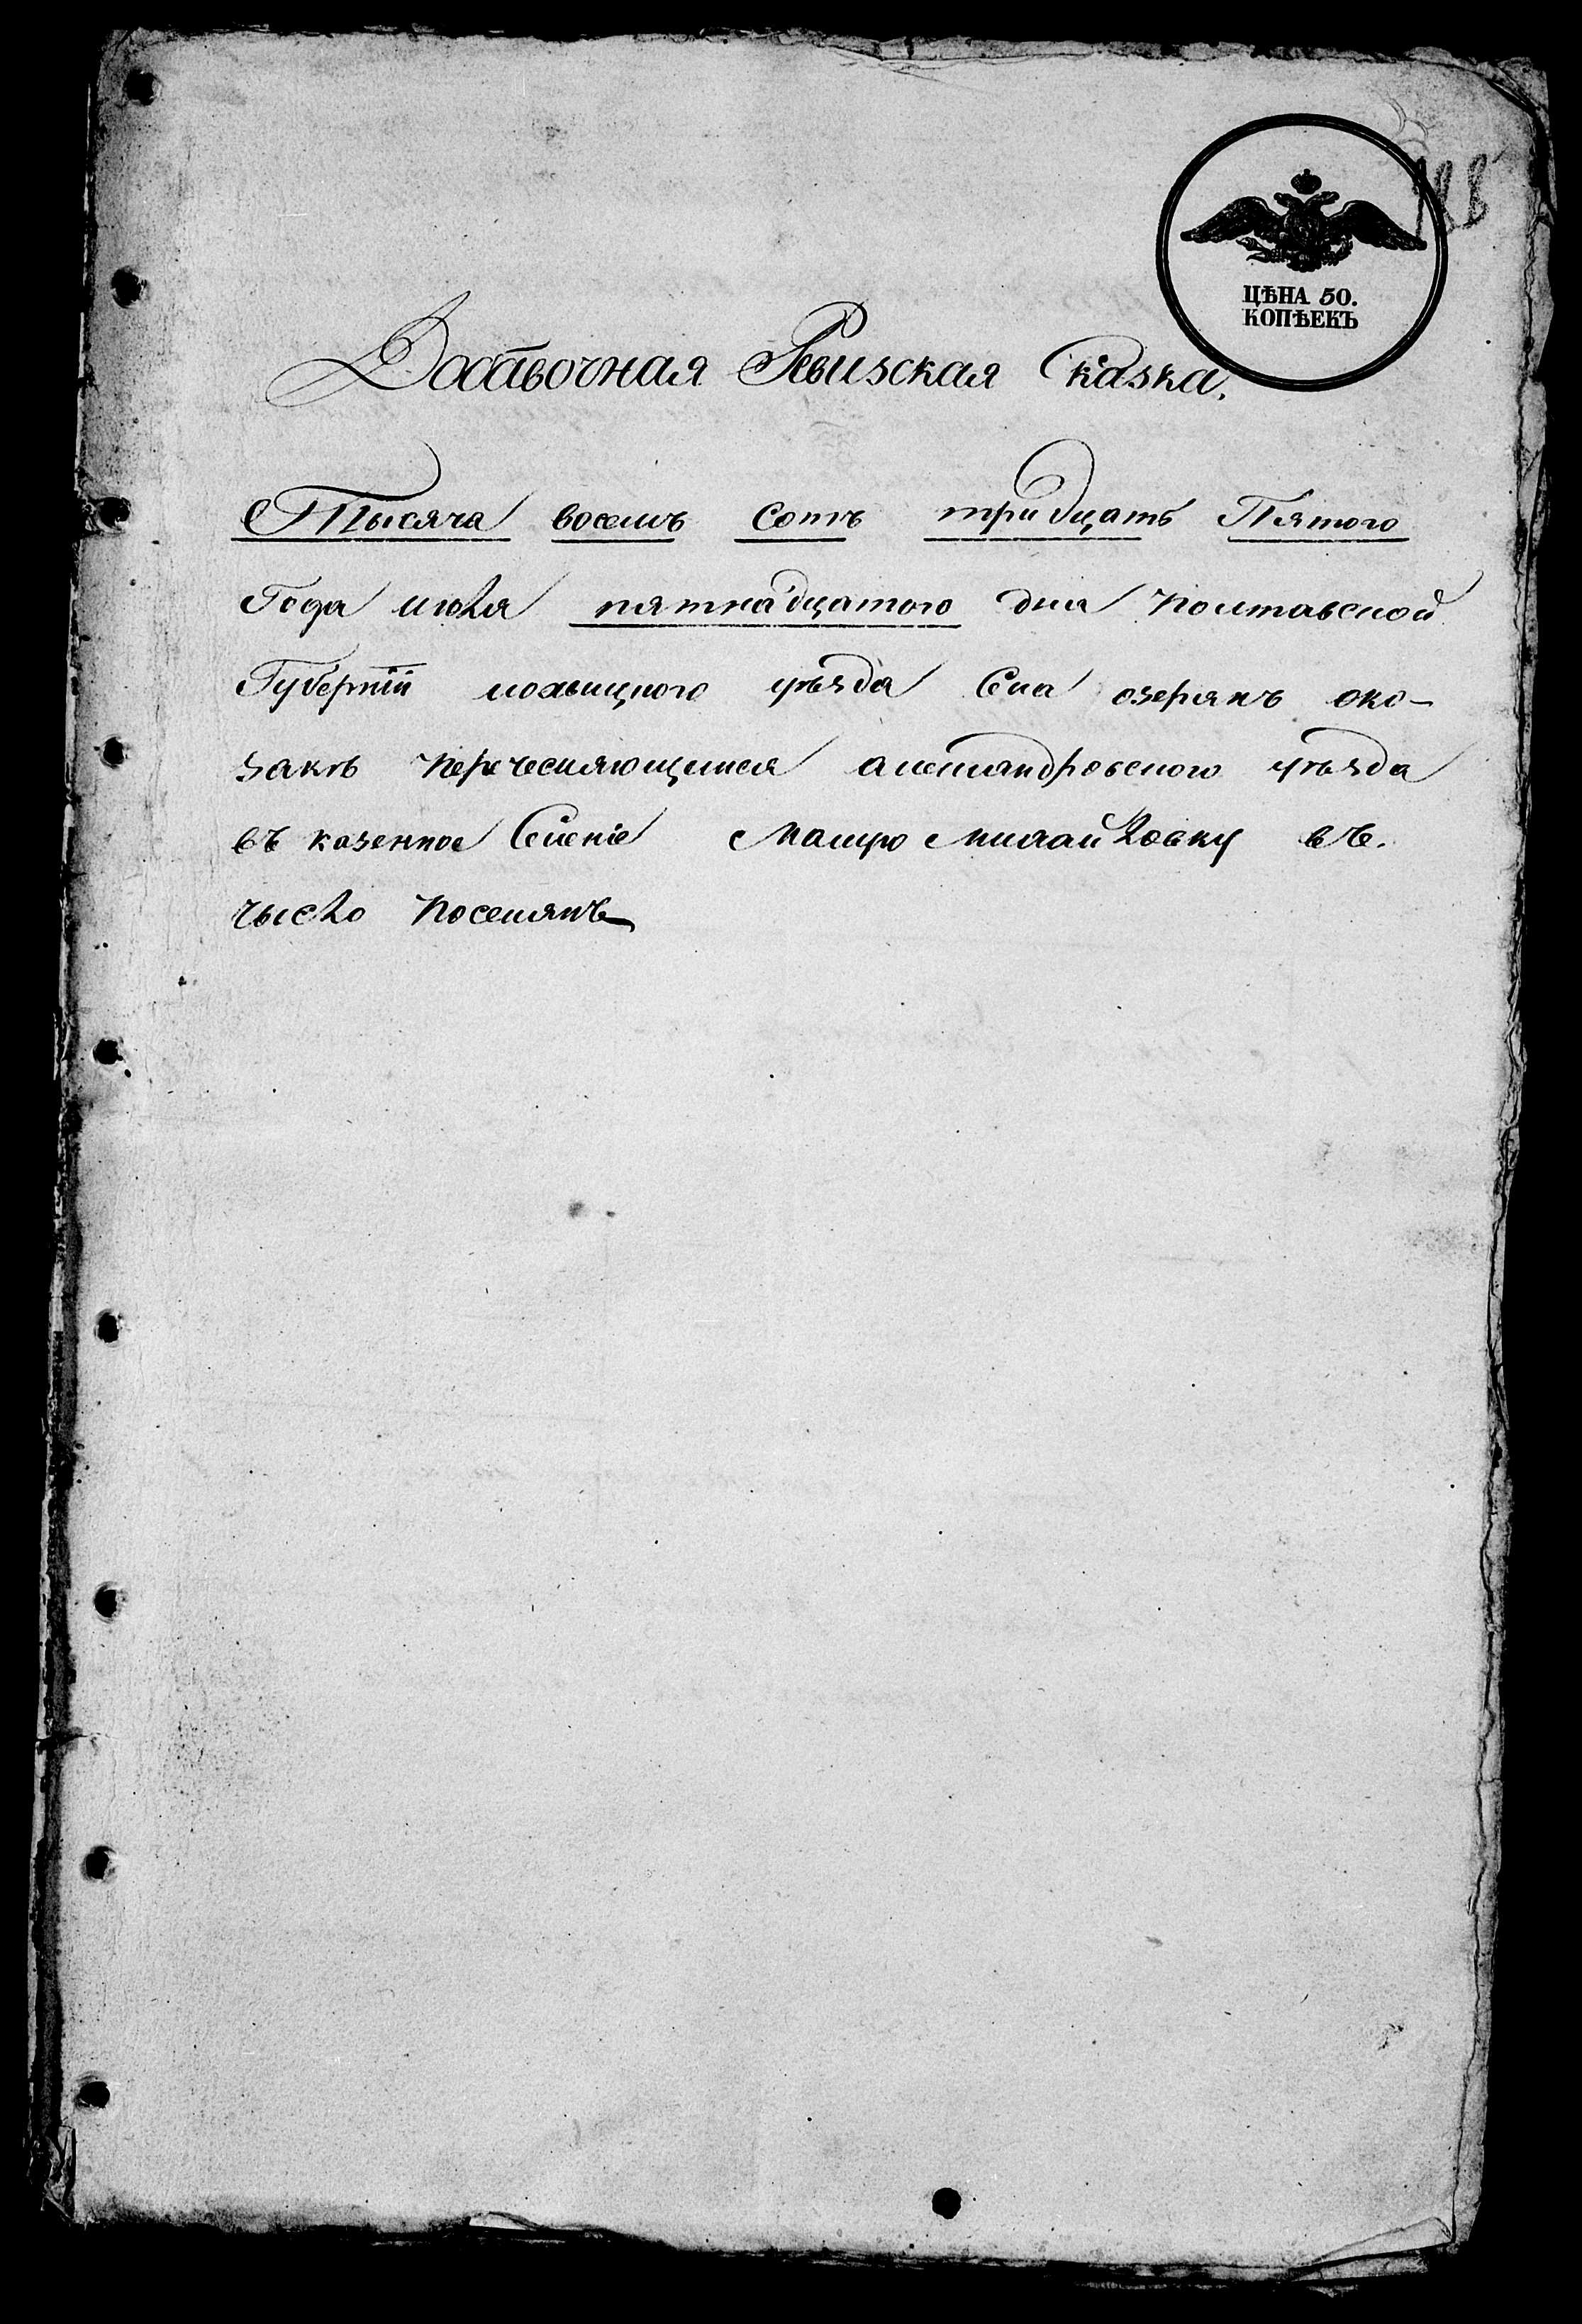 ЦѢНА 50.
КОПѢЕКЪ
Доставочная Ревизская Сказка.
Тысяча восемъ сотъ тридцать Пятого
Года июля пятнадцатого дня Полтавской
Губерніи лохвицкого уѣзда Села озерянъ око-
закъ Перечесляющимся александровского уѣзда
въ казенное Селеніе Мануро Михайловку въ
чысло Поселянъ